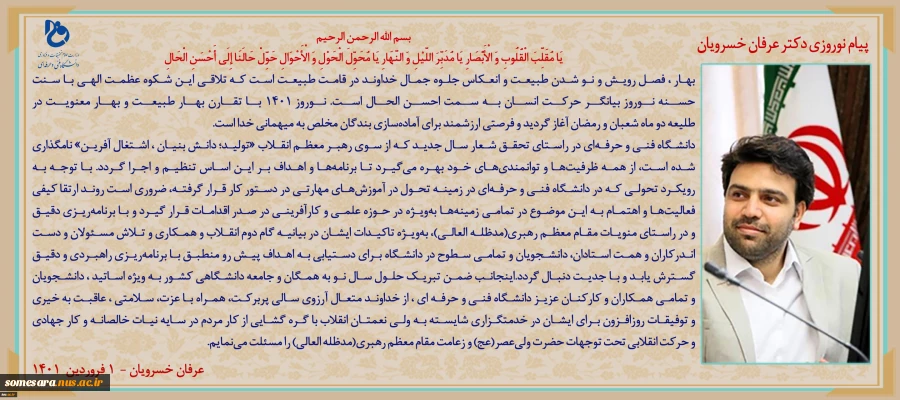 پیام نوروزی دکتر عرفان خسرویان
بسم الله الرحمن الرحیم
یَا مُقَلِّبَ الْقُلُوبِ وَ الْأَبْصَارِ یَا مُدَبِّرَ اللَّیْلِ وَ النَّهَارِ یَا مُحَوِّلَ الْحَوْلِ وَ الْأَحْوَالِ حَوِّلْ حَالَنَا إِلَى أَحْسَنِ الْحَالِ
بهار ، فصل رویش و نو شدن طبیعت و انعکاس جلوه جمال خداوند در قامت طبیعت است که تلاقی این شکوه عظمت الهی با سنت
حسنه نوروز بیانگر حرکت انسان به سمت احسن الحال است. نوروز ۱۴۰۱ با تقارن بهار طبیعت و بهار معنویت در
طلیعه دو ماه شعبان و رمضان آغاز گردید و فرصتی ارزشمند برای آماده‌سازی بندگان مخلص به میهمانی خدا است.
دانشگاه فنی و حرفه‌ای در راستای تحقق شعار سال جدید که از سوی رهبر معظم انقلاب «تولید؛ دانش بنیان ، اشتغال آفرین» نامگذاری
شده است، از همه ظرفیت‌ها و توانمندی‌های خود بهره می‌گیرد تا برنامه‌ها و اهداف بر این اساس تنظیم و اجرا گردد. با توجه به
رویکرد تحولی که در دانشگاه فنی و حرفه‌ای در زمینه تحول در آموزش‌های مهارتی در دستور کار قرار گرفته، ضروری است روند ارتقا کیفی
فعالیت‌ها و اهتمام به این موضوع در تمامی زمینه‌ها به‌ویژه در حوزه علمی و کارآفرینی در صدر اقدامات قرار گیرد و با برنامه‌ریزی دقیق
و در راستای منویات مقام معظم رهبری(مدظله العالی)، به‌ویژه تاکیدات ایشان در بیانیه گام دوم انقلاب و همکاری و تلاش مسئولان و دست
اندرکاران و همت استادان، دانشجویان و تمامی سطوح در دانشگاه برای دستیابی به اهداف پیش رو منطبق با برنامه‌ریزی راهبردی و دقیق
گسترش یابد و با جدیت دنبال گردد.اینجانب ضمن تبریک حلول سال نو به همگان و جامعه دانشگاهی کشور به ویژه اساتید ، دانشجویان
و تمامی همکاران و کارکنان عزیز دانشگاه فنی و حرفه ای ، از خداوند متعال آرزوی سالی پربرکت، همراه با عزت، سلامتی ، عاقبت به خیری
و توفیقات روزافزون برای ایشان در خدمتگزاری شایسته به ولی نعمتان انقلاب با گره گشایی از کار مردم در سایه نیات خالصانه و کار جهادی
و حرکت انقلابی تحت توجهات حضرت ولی‌عصر(عج) و زعامت مقام معظم رهبری(مدظله العالی) را مسئلت می‌نمایم.
عرفان خسرویان - ۱ فروردین ۱۴۰۱
somesara.nus.ac.ir